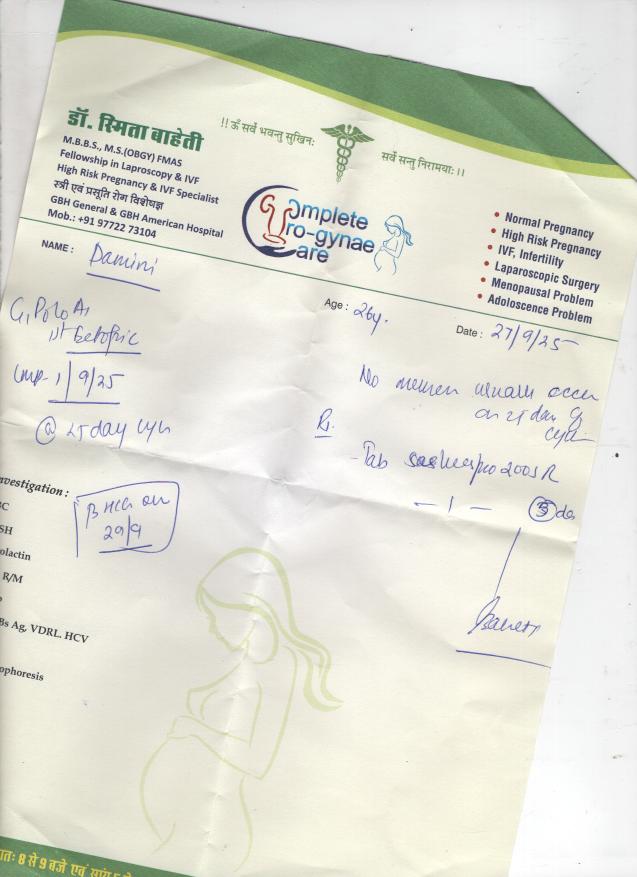 डॉ. स्मिता बाहेती
M.B.B.S., M.S.(OBGY) FMAS
Fellowship in Laproscopy & IVF
High Risk Pregnancy & IVF Specialist
स्त्री एवं प्रसूति रोग विशेषज्ञ
GBH General & GBH American Hospital
Mob.: +91 97722 73104
!! ऊँ सर्वे भवन्तु सुखिनः
सर्वे सन्तु निरामयाः।।
Complete
Uro-gynae
Care
• Normal Pregnancy
• High Risk Pregnancy
• IVF, Infertility
• Laparoscopic Surgery
• Menopausal Problem
• Adoloscence Problem
NAME : Damini
Age : 26y.
Date : 27/9/25
G1P0L0A1
1st Ectopic
LMP- 1/9/25
@ 25 day
No
on 25 day of
Rx
- Tab 200 SR
- 1 -
5 da
nvestigation :
β HCG on
29/9
BC
SH
olactin
R/M
Bs Ag, VDRL. HCV
ophoresis
ातः 8 से 9 बजे एवं सायं